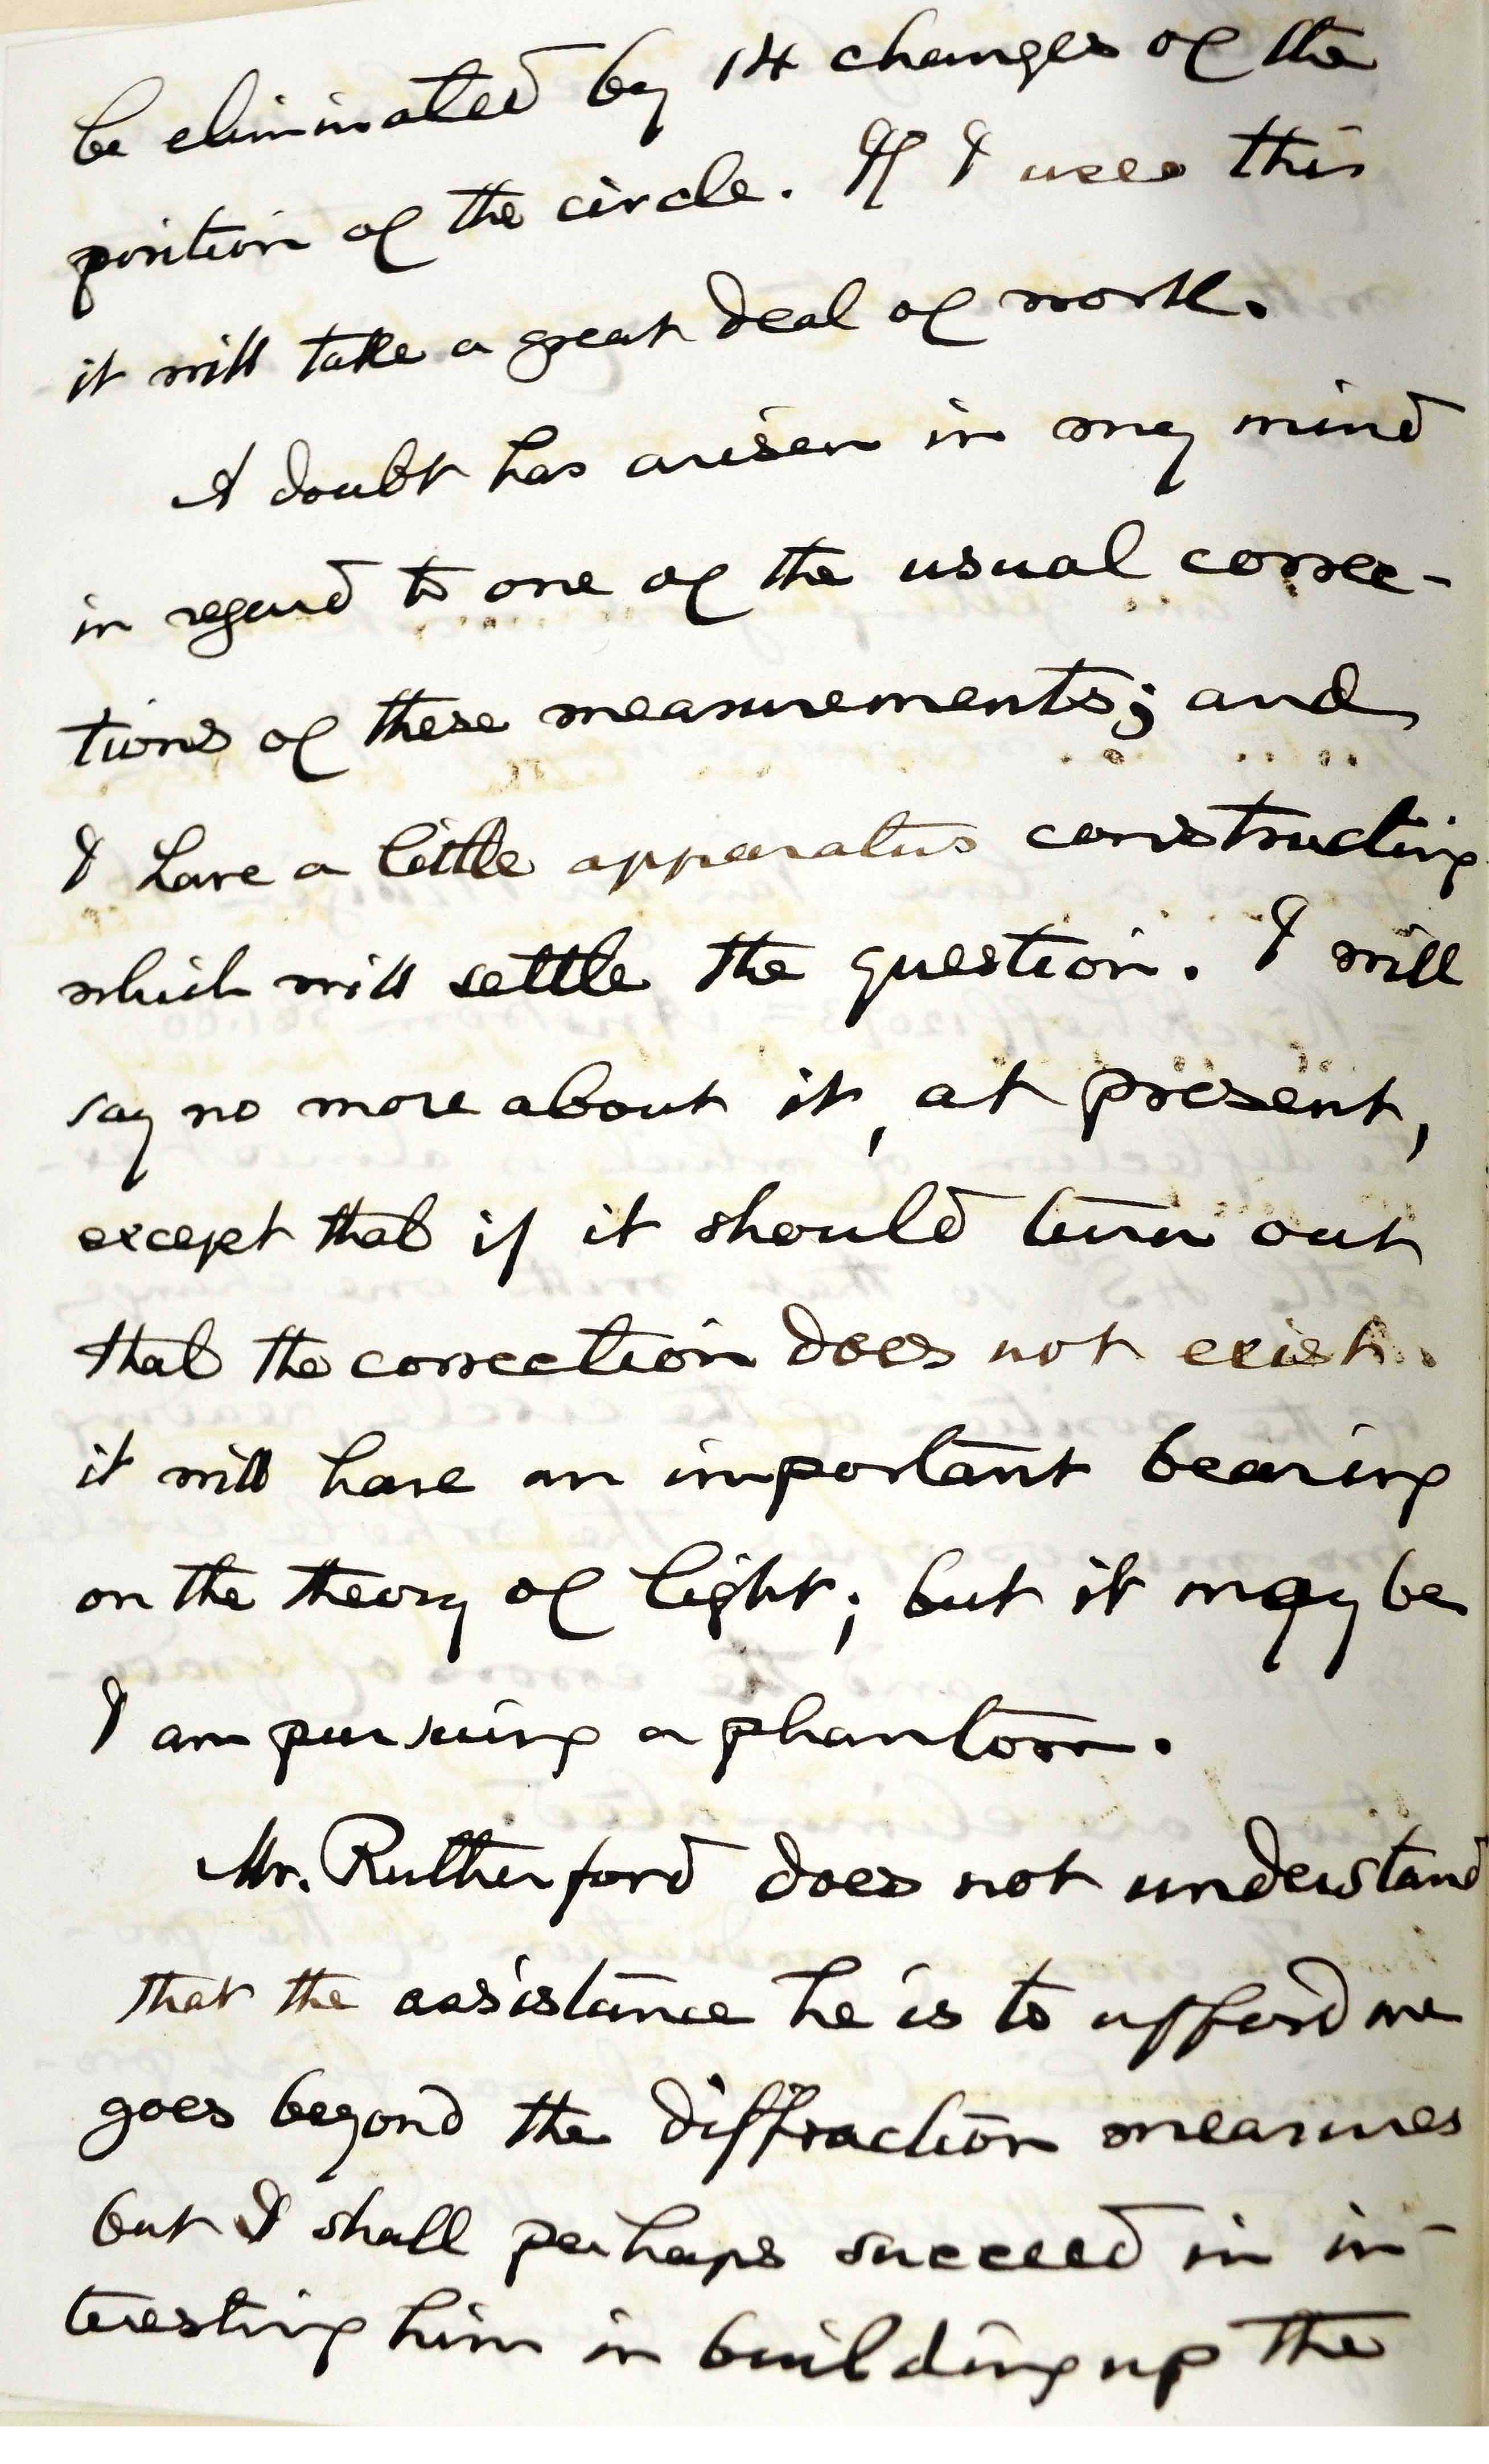 be eliminated by 14 changes of the
position of the circle. If I uses this
it will take a great deal of work.
A doubt has arisen in my mind
in regard to one of the usual correc-
tions of these measurements; and
I have a little apparatus constructing
which will settle the question. I will
say no more about it, at present,
except that if it should turn out
that the correction does not exist
it will have an important bearing
on the theory of light; but it may be
I am pursuing a phantom.
Mr. Rutherford does not understand
that the assistance he is to afford me
goes beyond the diffraction measures
but I shall perhaps succeed in in-
teresting him in building up the